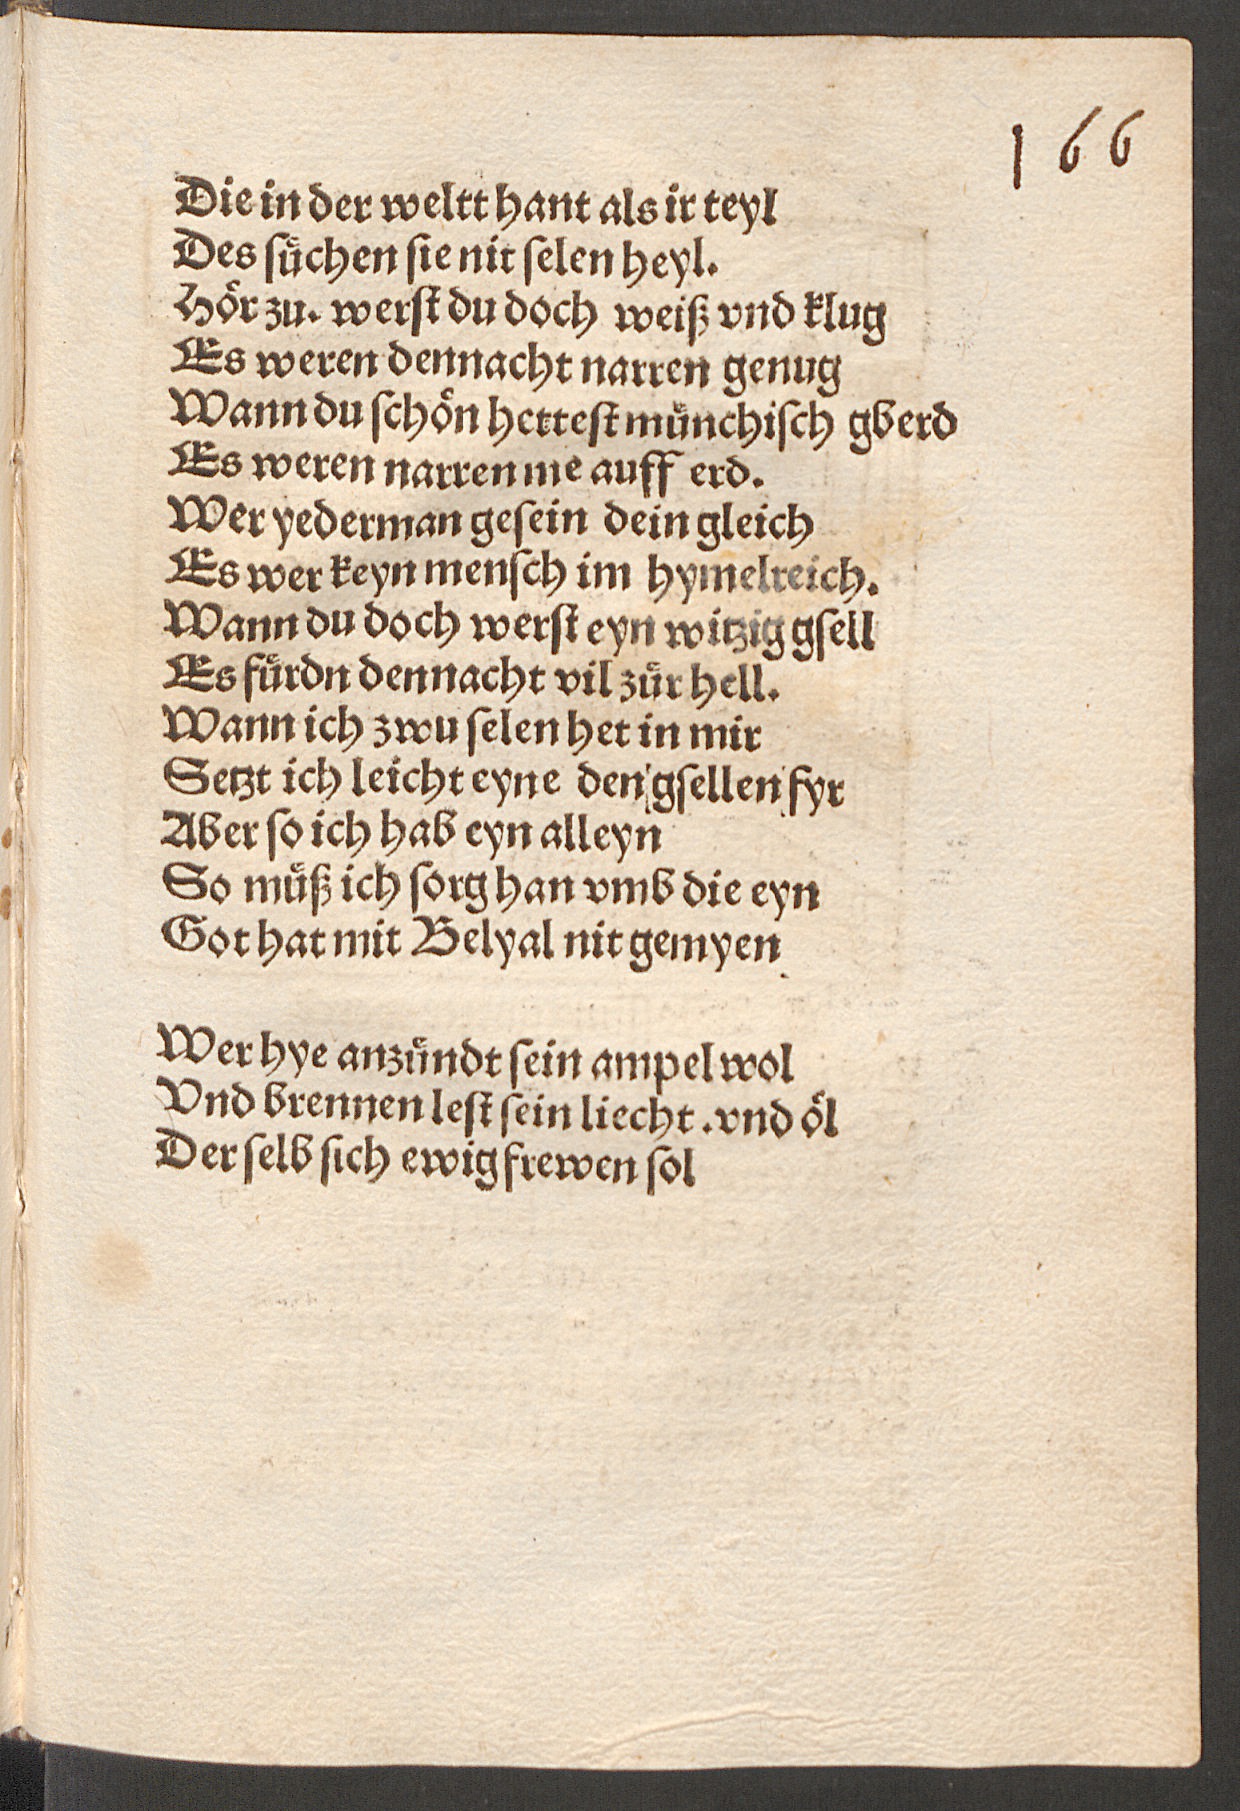 166
Die in der weltt hant als ir teyl
Des sůchen sie nit selen heyl.
Hoͤr zu. werst du doch weiß vnd klug
Es weren dennacht narren genug
Wann du schoͤn hettest muͤnchisch gberd
Es weren narren me auff erd.
Wer yederman gesein dein gleich
Es wer keyn mensch im hymelreich.
Wann du doch werst eyn witzig gsell
Es fuͤrdn dennacht vil zuͤr hell.
Wann ich zwu selen het in mir
Setzt ich leicht eyne den gsellen fyr
Aber so ich hab eyn alleyn
So muͤß ich sorg han vmb die eyn
Got hat mit Belyal nit gemyen
Wer hye anzuͤndt sein ampel wol
Vnd brennen lest sein liecht .vnd oͤl
Der selb sich ewig frewen sol